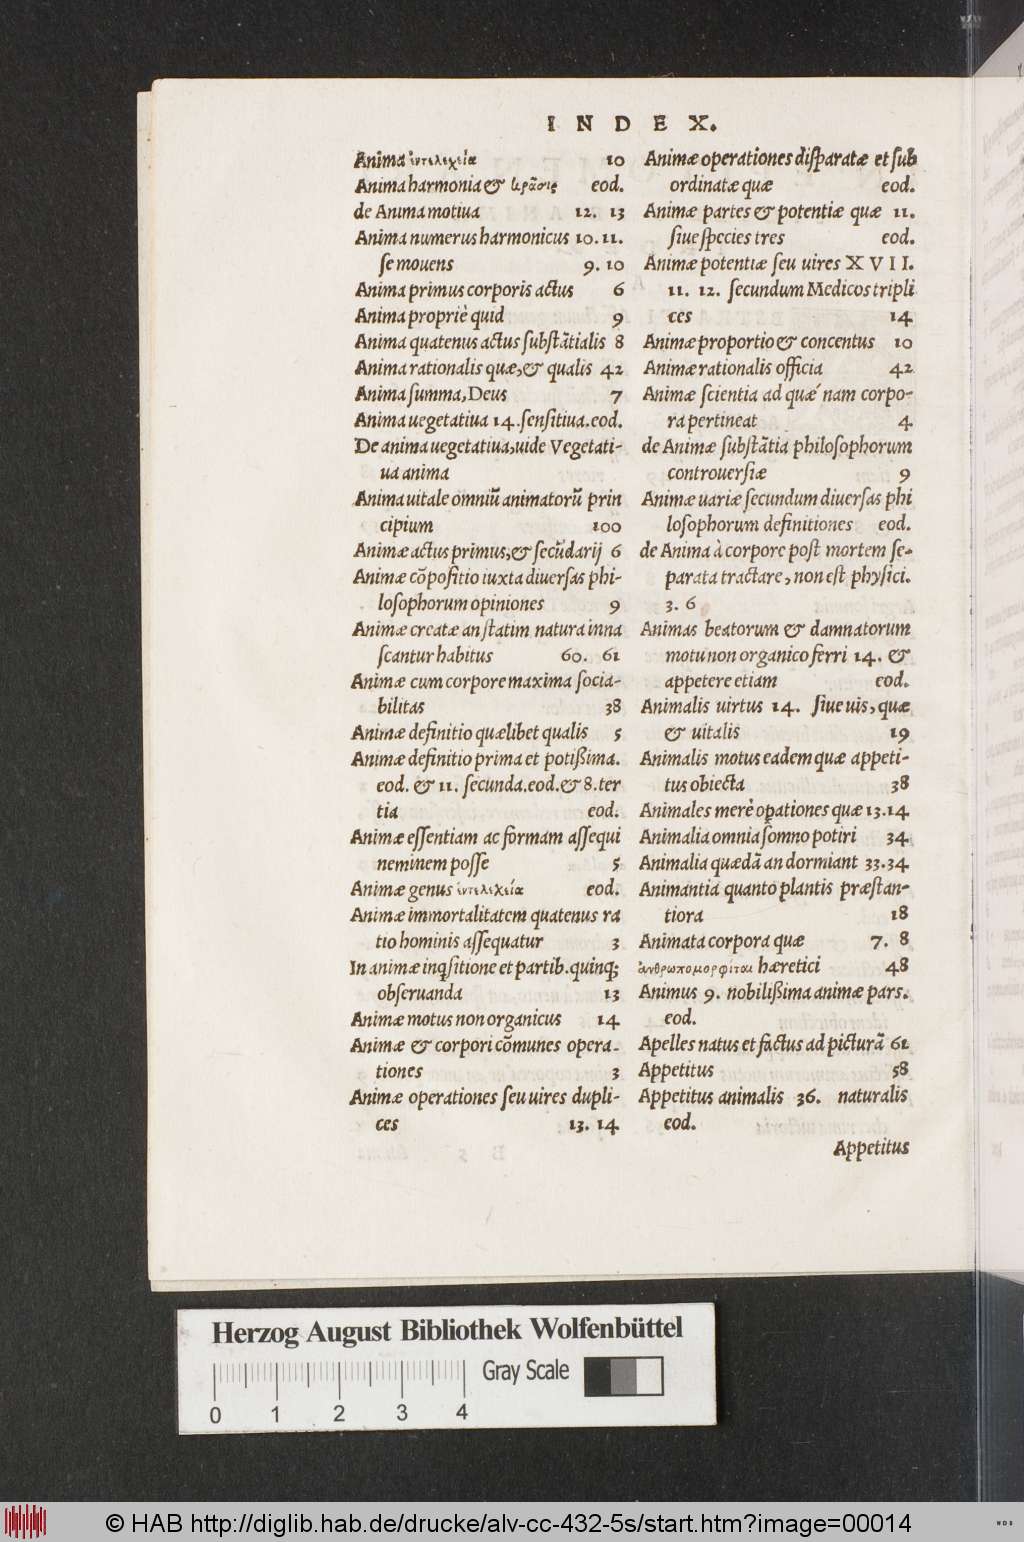 INDEX.
Anima ἐντελεχεία 10
Anima harmonia & κρᾶσις eod.
de Anima motiua 12. 13
Anima numerus harmonicus 10. 11.
se mouens 9. 10
Anima primus corporis actus 6
Anima propriè quid 9
Anima quatenus actus substãtialis 8
Anima rationalis quæ, & qualis 42
Anima summa, Deus 7
Anima uegetatiua 14. sensitiua. eod.
De anima uegetatiua, uide Vegetati-
ua anima
Anima uitale omniũ animatorũ prin
cipium 100
Animæ actus primus, & secũdarij 6
Animæ cõpositio iuxta diuersas phi-
losophorum opiniones 9
Animæ creatæ an statim natura inna
scantur habitus 60. 61
Animæ cum corpore maxima socia-
bilitas 38
Animæ definitio quælibet qualis 5
Animæ definitio prima et potißima.
eod. & 11. secunda. eod. & 8. ter
tia eod.
Animæ essentiam ac formam assequi
neminem posse 5
Animæ genus ἐντελεχεία eod.
Animæ immortalitatem quatenus ra
tio hominis assequatur 3
In animæ inqsitione et partib. quinq;
obseruanda 13
Animæ motus non organicus 14
Animæ & corpori cõmunes opera-
tiones 3
Animæ operationes seu uires dupli-
ces 13. 14
Animæ operationes disparatæ et sub
ordinatæ quæ eod.
Animæ partes & potentiæ quæ 11.
siue species tres eod.
Animæ potentiæ seu uires XVII.
11. 12. secundum Medicos tripli
ces 14
Animæ proportio & concentus 10
Animæ rationalis officia 42
Animæ scientia ad quæ´nam corpo-
ra pertineat 4
de Animæ substãtia philosophorum
controuersiæ 9
Animæ uariæ secundum diuersas phi
losophorum definitiones eod.
de Anima à corpore post mortem se-
parata tractare, non est physici.
3. 6
Animas beatorum & damnatorum
motu non organico ferri 14. &
appetere etiam eod.
Animalis uirtus 14. siue uis, quæ
& uitalis 19
Animalis motus eadem quæ appeti-
tus obiecta 38
Animales merè oꝑationes quæ 13. 14
Animalia omnia somno potiri 34
Animalia quædã an dormiant 33. 34
Animantia quanto plantis præstan-
tiora 18
Animata corpora quæ 7. 8
ἀνθρωπομορφίται hæretici 48
Animus 9. nobilißima animæ pars.
eod.
Apelles natus et factus ad picturã 61
Appetitus 58
Appetitus animalis 36. naturalis
eod.
Appetitus
Herzog August Bibliothek Wolfenbüttel
Gray Scale
0 1 2 3 4
© HAB http://diglib.hab.de/drucke/alv-cc-432-5s/start.htm?image=00014